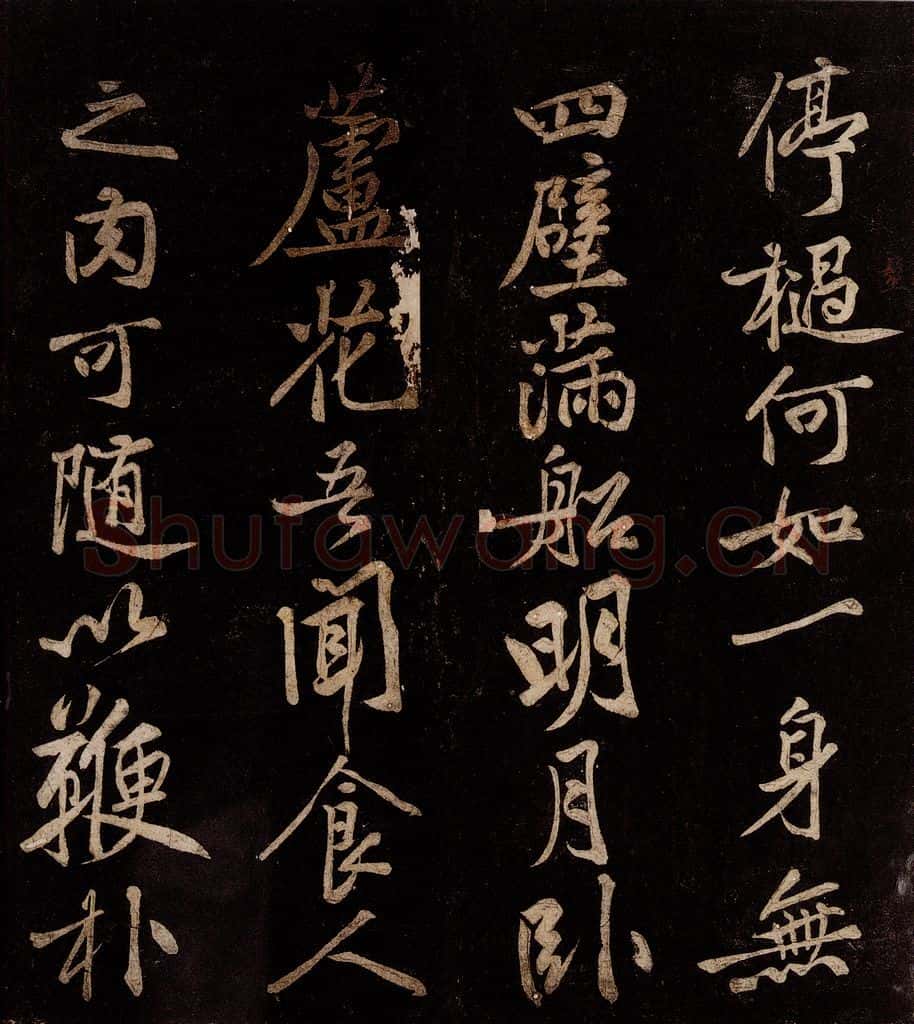 停檛何如一身無
四壁滿船明月臥
蘆花吾聞食人
之肉可随以鞭朴
Shufawang.CN